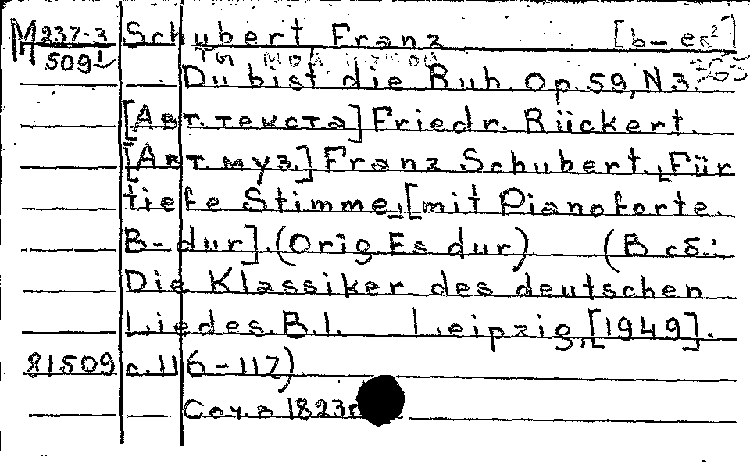 М 237-3 Schubert Franz [b-es²]
509 Ты мой покой
Du bist die Ruh. Op. 59, N 3.
[Авт. текста] Friedr. Rückert.
[Авт. муз.] Franz Schubert. Für
tiefe Stimme, [mit Pianoforte.
B-dur]. (Orig. Es dur) (В сб.:
Die Klassiker des deutschen
Liedes. B. I. Leipzig, [1949].
81509 с. 116-117)
Соч. в 1823г